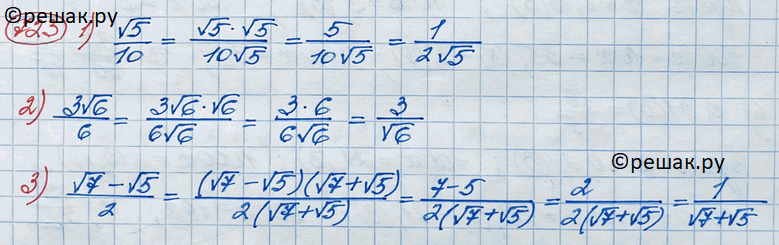 ©решак.ру
723 1) √5/10 = √5·√5/10√5 = 5/10√5 = 1/2√5
2) 3√6/6 = 3√6·√6/6√6 = 3·6/6√6 = 3/√6
©решак.ру
3) √7-√5/2 = (√7-√5)(√7+√5)/2(√7+√5) = 7-5/2(√7+√5) = 2/2(√7+√5) = 1/√7+√5